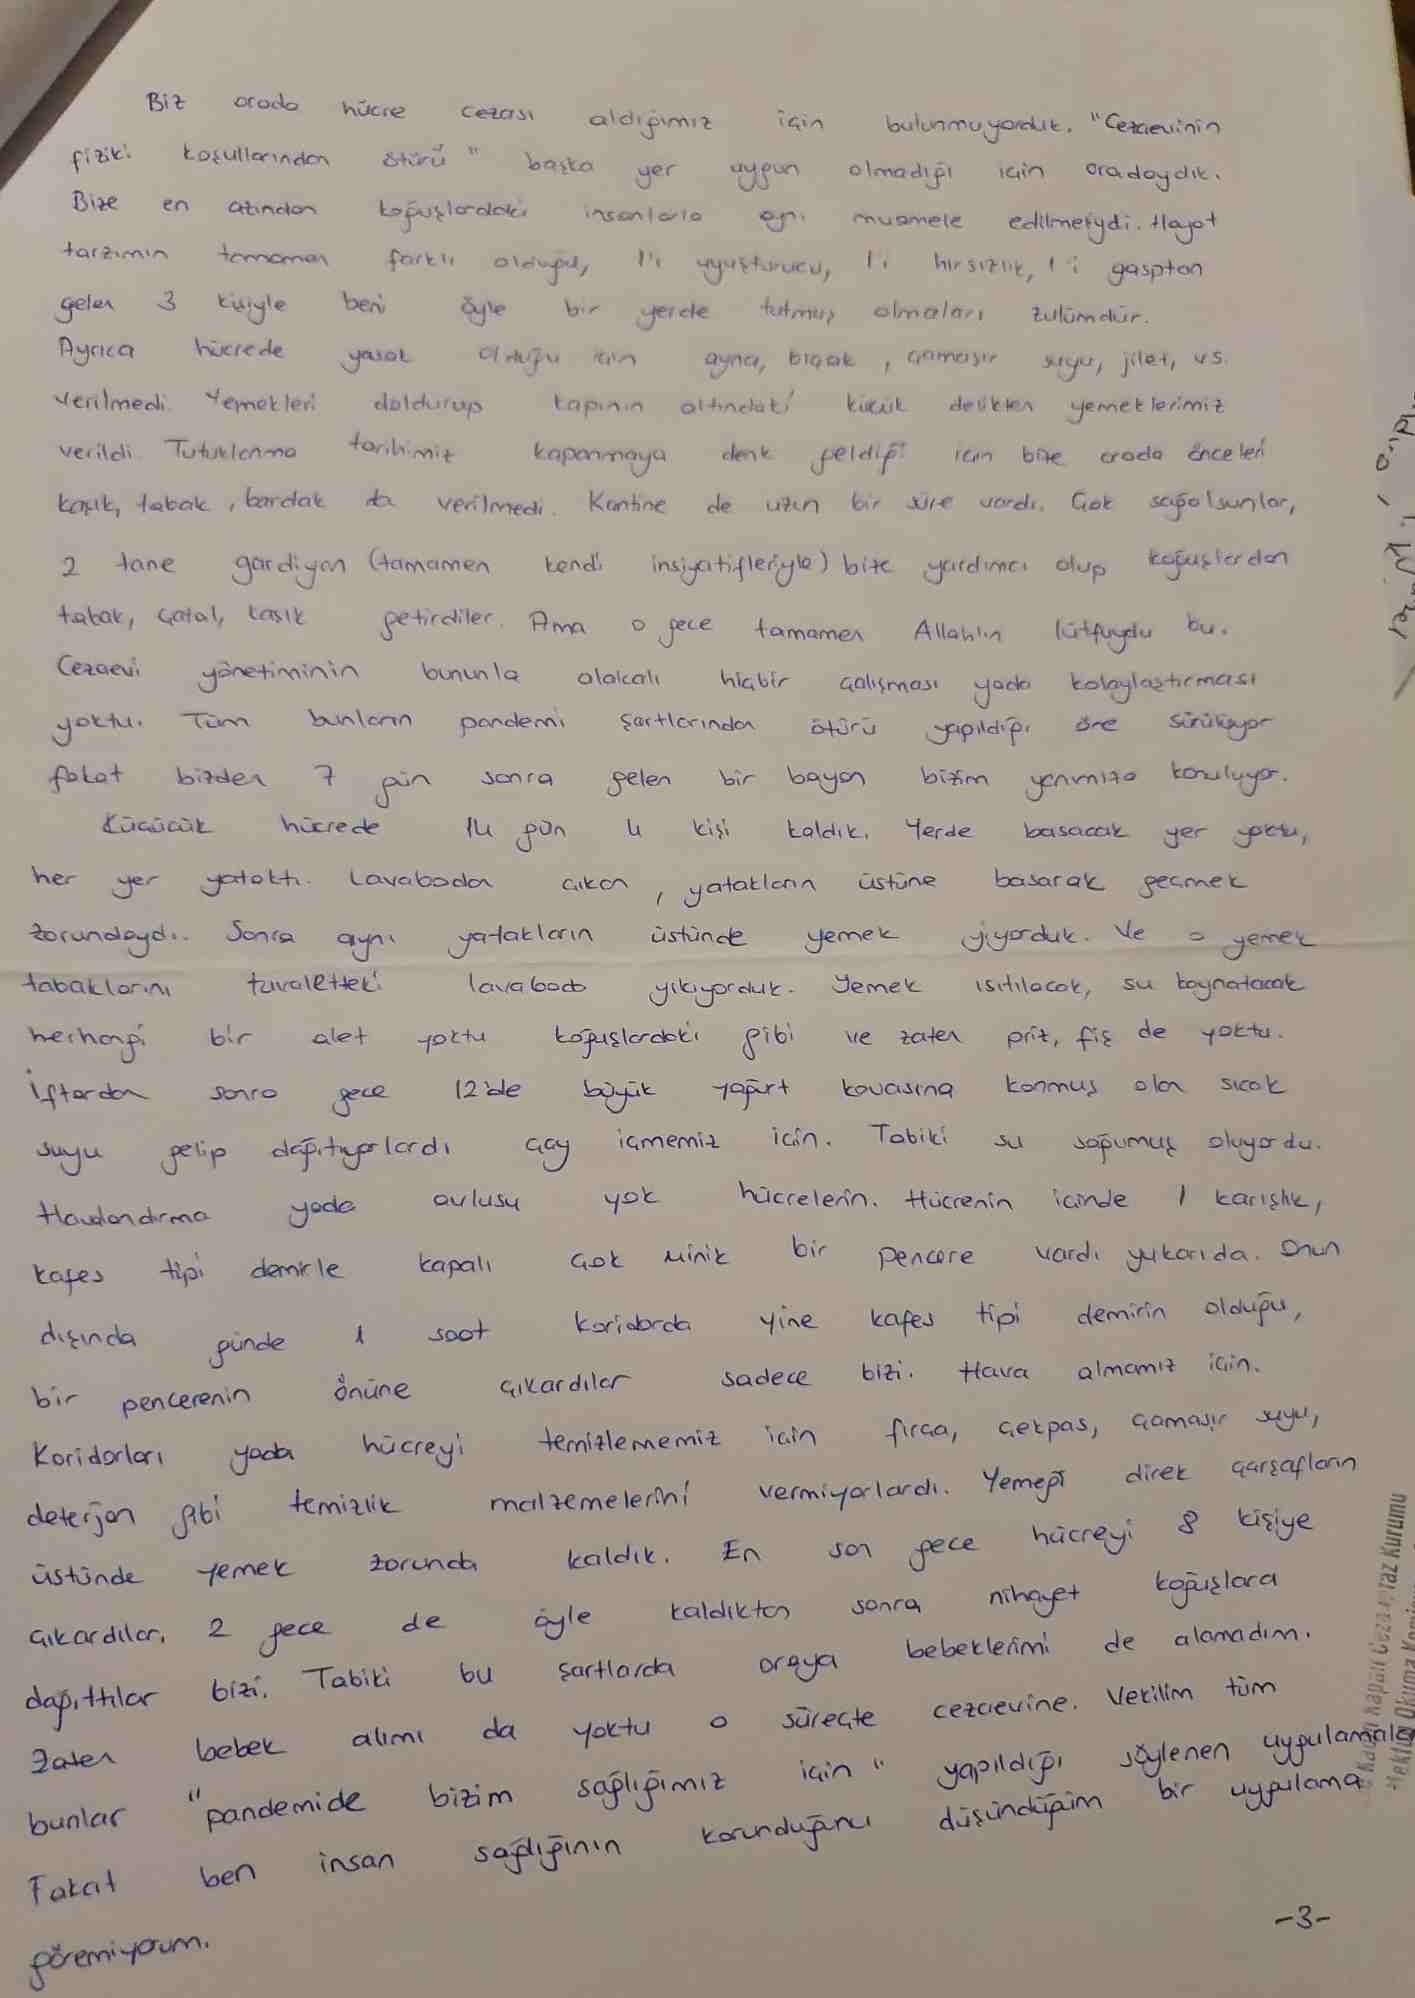 Biz orada hücre cezası aldığımız için bulunmuyorduk. "Cezaevinin
fiziki koşullarından ötürü" başka yer uygun olmadığı için oradaydık.
Bize en azından koğuşlardaki insanlarla aynı muamele edilmeliydi. Hayat
tarzımın tamamen farklı olduğu, 1'i uyuşturucu, 1'i hırsızlık, 1'i gasptan
gelen 3 kişiyle beni öyle bir yerde tutmuş olmaları zulümdür.
Ayrıca hücrede yasak olduğu için ayna, bıçak, çamaşır suyu, jilet, vs.
verilmedi. Yemekleri doldurup kapının altındaki küçük delikten yemeklerimiz
verildi. Tutuklanma tarihimiz kapanmaya denk geldiği için bize orada önceleri
kaşık, tabak, bardak da verilmedi. Kantine de uzun bir süre vardı. Çok sağolsunlar,
2 tane gardiyan (tamamen kendi insiyatifleriyle) bize yardımcı olup koğuşlardan
tabak, çatal, kaşık getirdiler. Ama o gece tamamen Allah'ın lütfuydu bu.
Cezaevi yönetiminin bununla alakalı hiçbir çalışması yada kolaylaştırması
yoktu. Tüm bunların pandemi şartlarından ötürü yapıldığı öne sürülüyor
fakat bizden 7 gün sonra gelen bir bayan bizim yanımıza konuluyor.
Küçücük hücrede 14 gün 4 kişi kaldık. Yerde basacak yer yoktu,
her yer yataktı. Lavabodan çıkan, yatakların üstüne basarak geçmek
zorundaydı. Sonra aynı yatakların üstünde yemek yiyorduk. Ve o yemek
tabaklarını tuvaletteki lavaboda yıkıyorduk. Yemek ısıtılacak, su kaynatacak
herhangi bir alet yoktu koğuşlardaki gibi ve zaten priz, fiş de yoktu.
İftardan sonra gece 12'de büyük yoğurt kovasına konmuş olan sıcak
suyu gelip dağıtıyorlardı çay içmemiz için. Tabiki su soğumuş oluyordu.
Havalandırma yada avlusu yok hücrelerin. Hücrenin içinde 1 karışlık,
kafes tipi demirle kapalı çok minik bir pencere vardı yukarıda. Onun
dışında günde 1 saat koridorda yine kafes tipi demirin olduğu,
bir pencerenin önüne çıkardılar sadece bizi. Hava almamız için.
Koridorları yada hücreyi temizlememiz için fırça, çekpas, çamaşır suyu,
deterjan gibi temizlik malzemelerini vermiyorlardı. Yemeği direk çarşafların
üstünde yemek zorunda kaldık. En son gece hücreyi 8 kişiye
çıkardılar. 2 gece de öyle kaldıktan sonra nihayet koğuşlara
dağıttılar bizi. Tabiki bu şartlarda oraya bebeklerimi de alamadım.
Zaten bebek alımı da yoktu o süreçte cezaevine. Vekilim tüm
bunlar "pandemide bizim sağlığımız için" yapıldığı söylenen uygulamalar
Fakat ben insan sağlığının korunduğunu düşündüğüm bir uygulama
göremiyorum.
-3-
Kapalı Ceza İnfaz Kurumu
Mektup Okuma